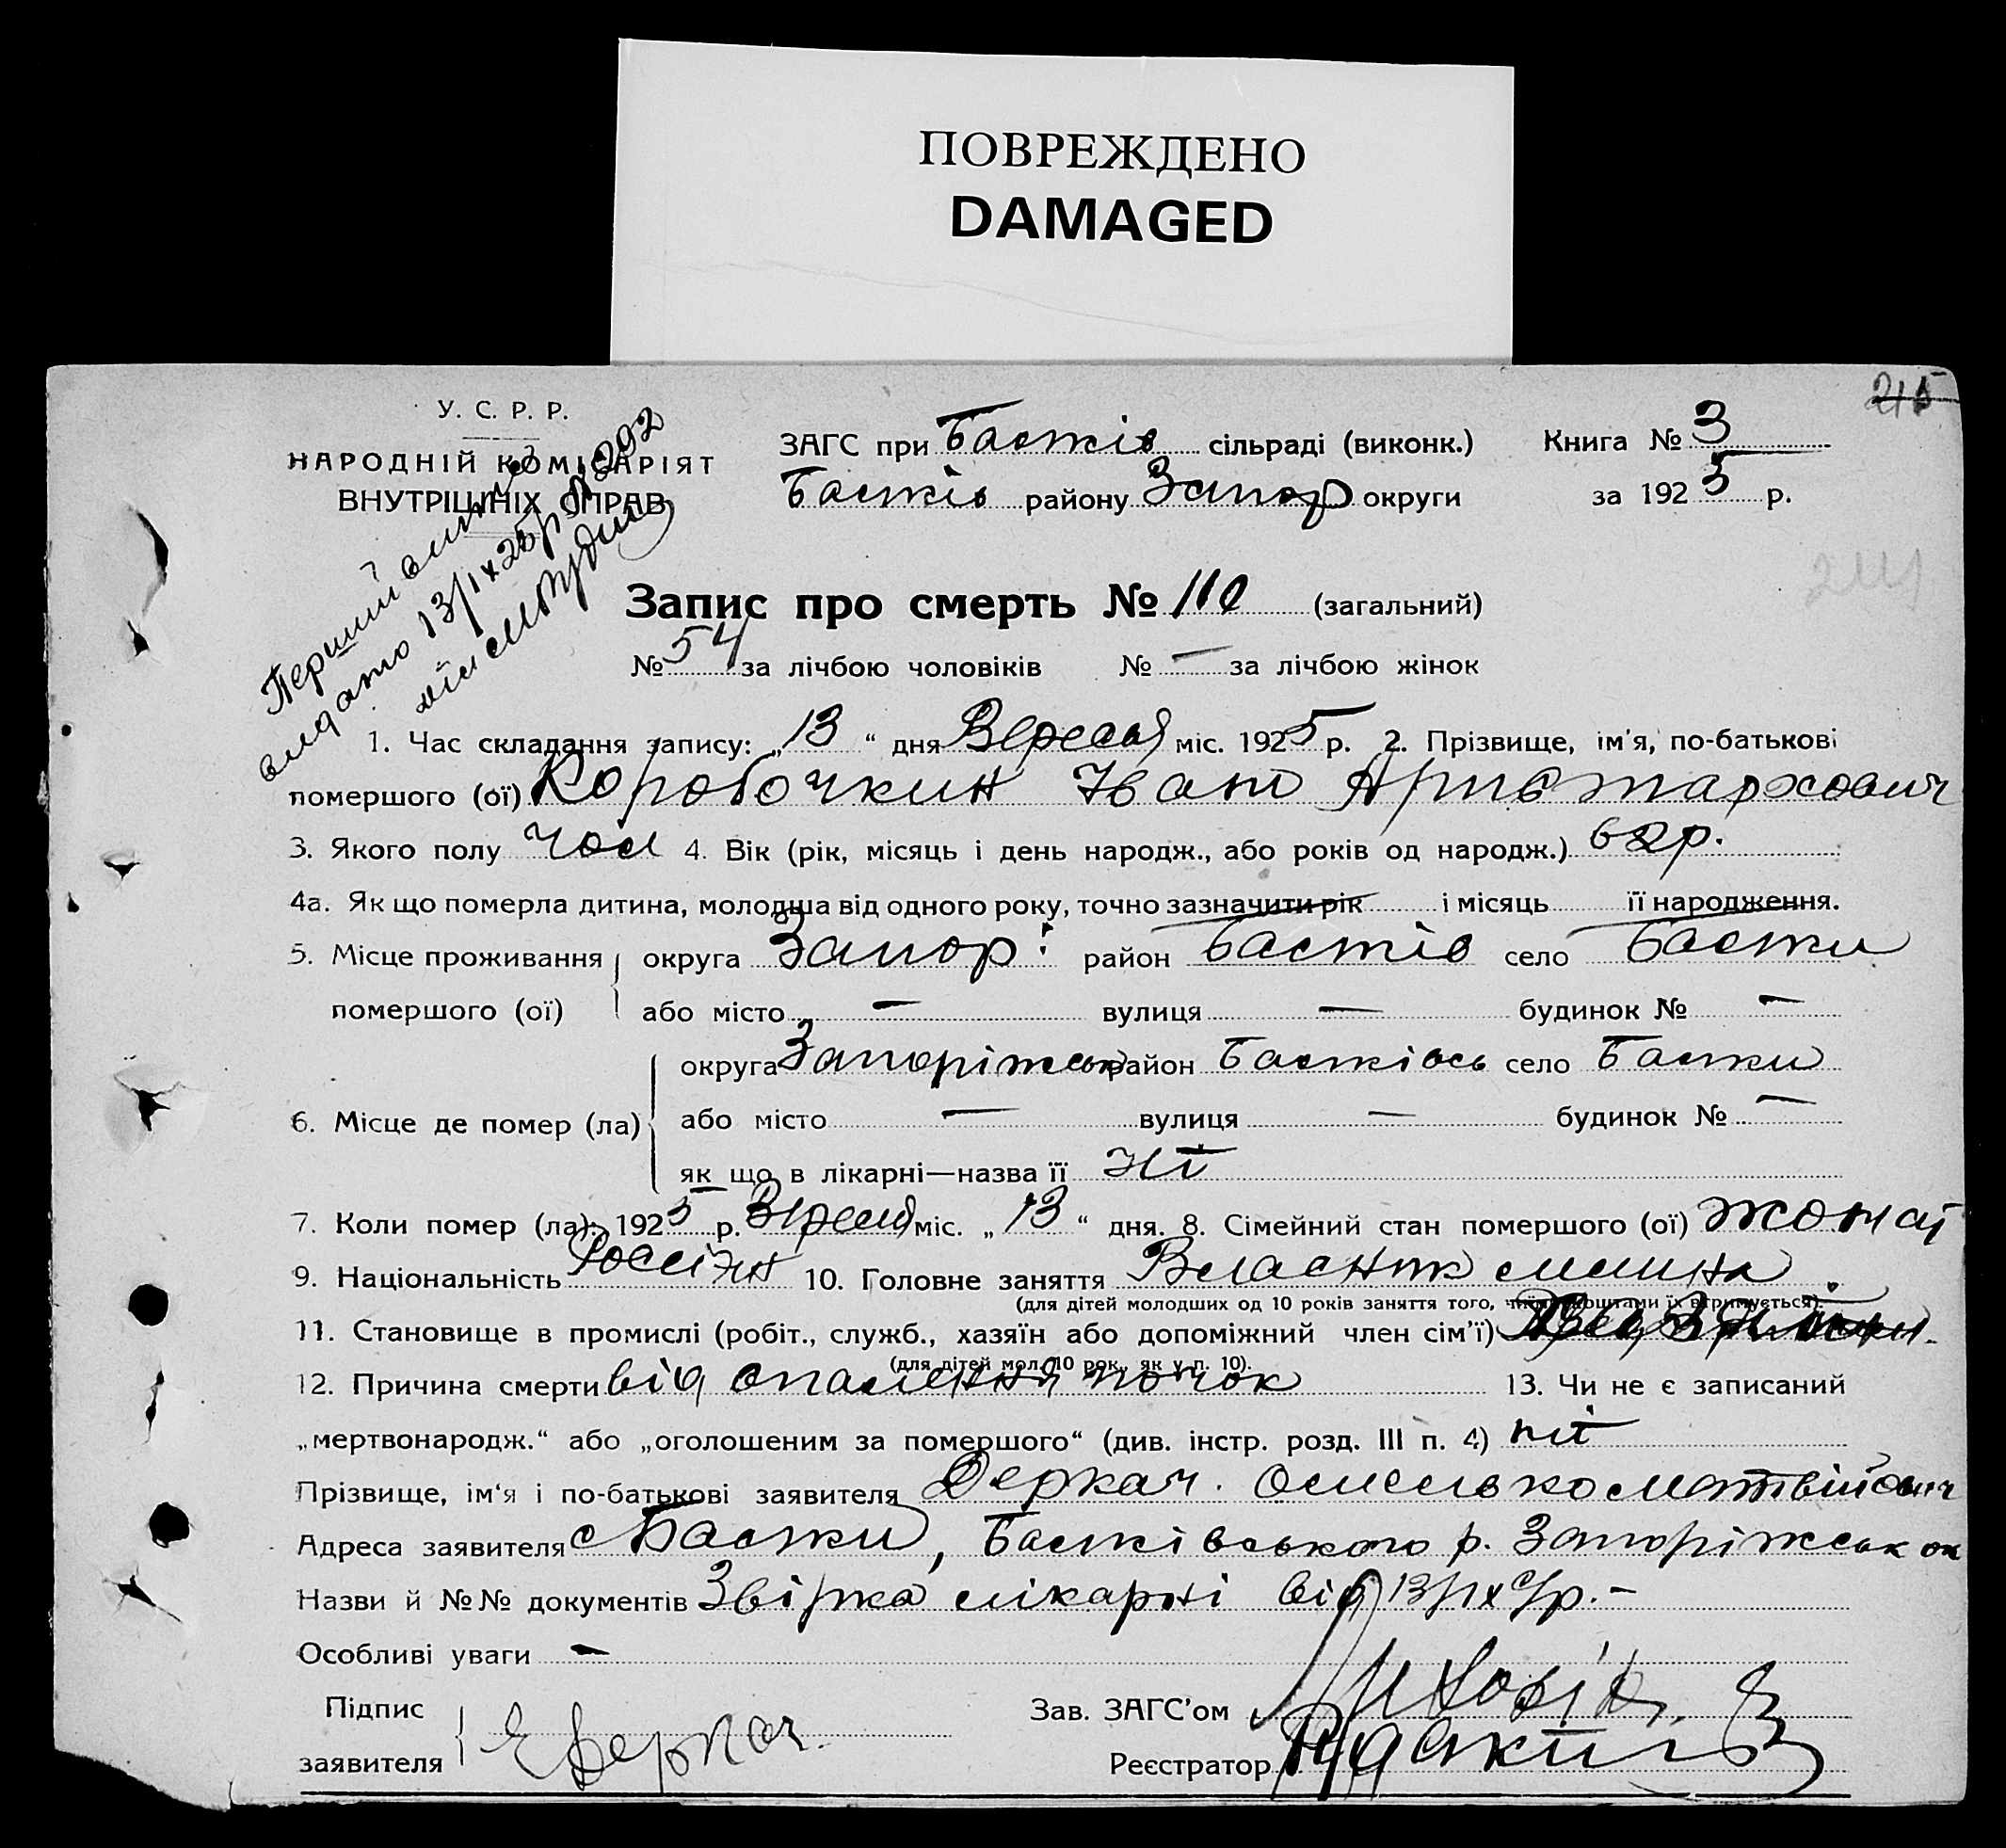 ПОВРЕЖДЕНО
DAMAGED
215
У. С. Р. Р.
НАРОДНІЙ КОМІСАРІЯТ
ВНУТРІШНІХ СПРАВ
Перший
видано 13/IX 25р № 292
ЗАГС при Басткiв сільраді (виконк.) Книга № 3
району Запор округи за 1925 р.
Запис про смерть № 110 (загальний)
№ 54 за лічбою чоловіків № — за лічбою жінок
1. Час складання запису: „13“ дня Вересня міс. 1925 р. 2. Прізвище, ім'я, по-батькові
помершого (ої) Коробочкин Іван Аристархович
3. Якого полу чол 4. Вік (рік, місяць і день народж., або років од народж.) 62р.
4а. Як що померла дитина, молодша від одного року, точно зазначити рік і місяць її народження.
5. Місце проживання округа Запор: район село
помершого (ої) або місто — вулиця — будинок № —
округа Запоріжськ район село
6. Місце де помер (ла) або місто — вулиця — будинок № —
як що в лікарні—назва її ні
7. Коли помер (ла): 1925 р. Вересня міс. „13“ дня. 8. Сімейний стан помершого (ої) жонат
9. Національність 10. Головне заняття Власник млина
(для дітей молодших од 10 років заняття того, чиїми коштами їх втримується).
11. Становище в промислі (робіт., служб., хазяїн або допоміжний член сім'ї)
(для дітей мол. 10 рок. як у п. 10).
12. Причина смерти від опалення почок 13. Чи не є записаний
„мертвонародж.“ або „оголошеним за помершого“ (див. інстр. розд. III п. 4) ні
Прізвище, ім'я і по-батькові заявителя Деркач Омелько Матвійович
Адреса заявителя с , р. Запоріжськ ок
Назви й №№ документів лікарні від 13/IX
Особливі уваги —
Підпис
заявителя Є Деркач
Зав. ЗАГС'ом
Реєстратор